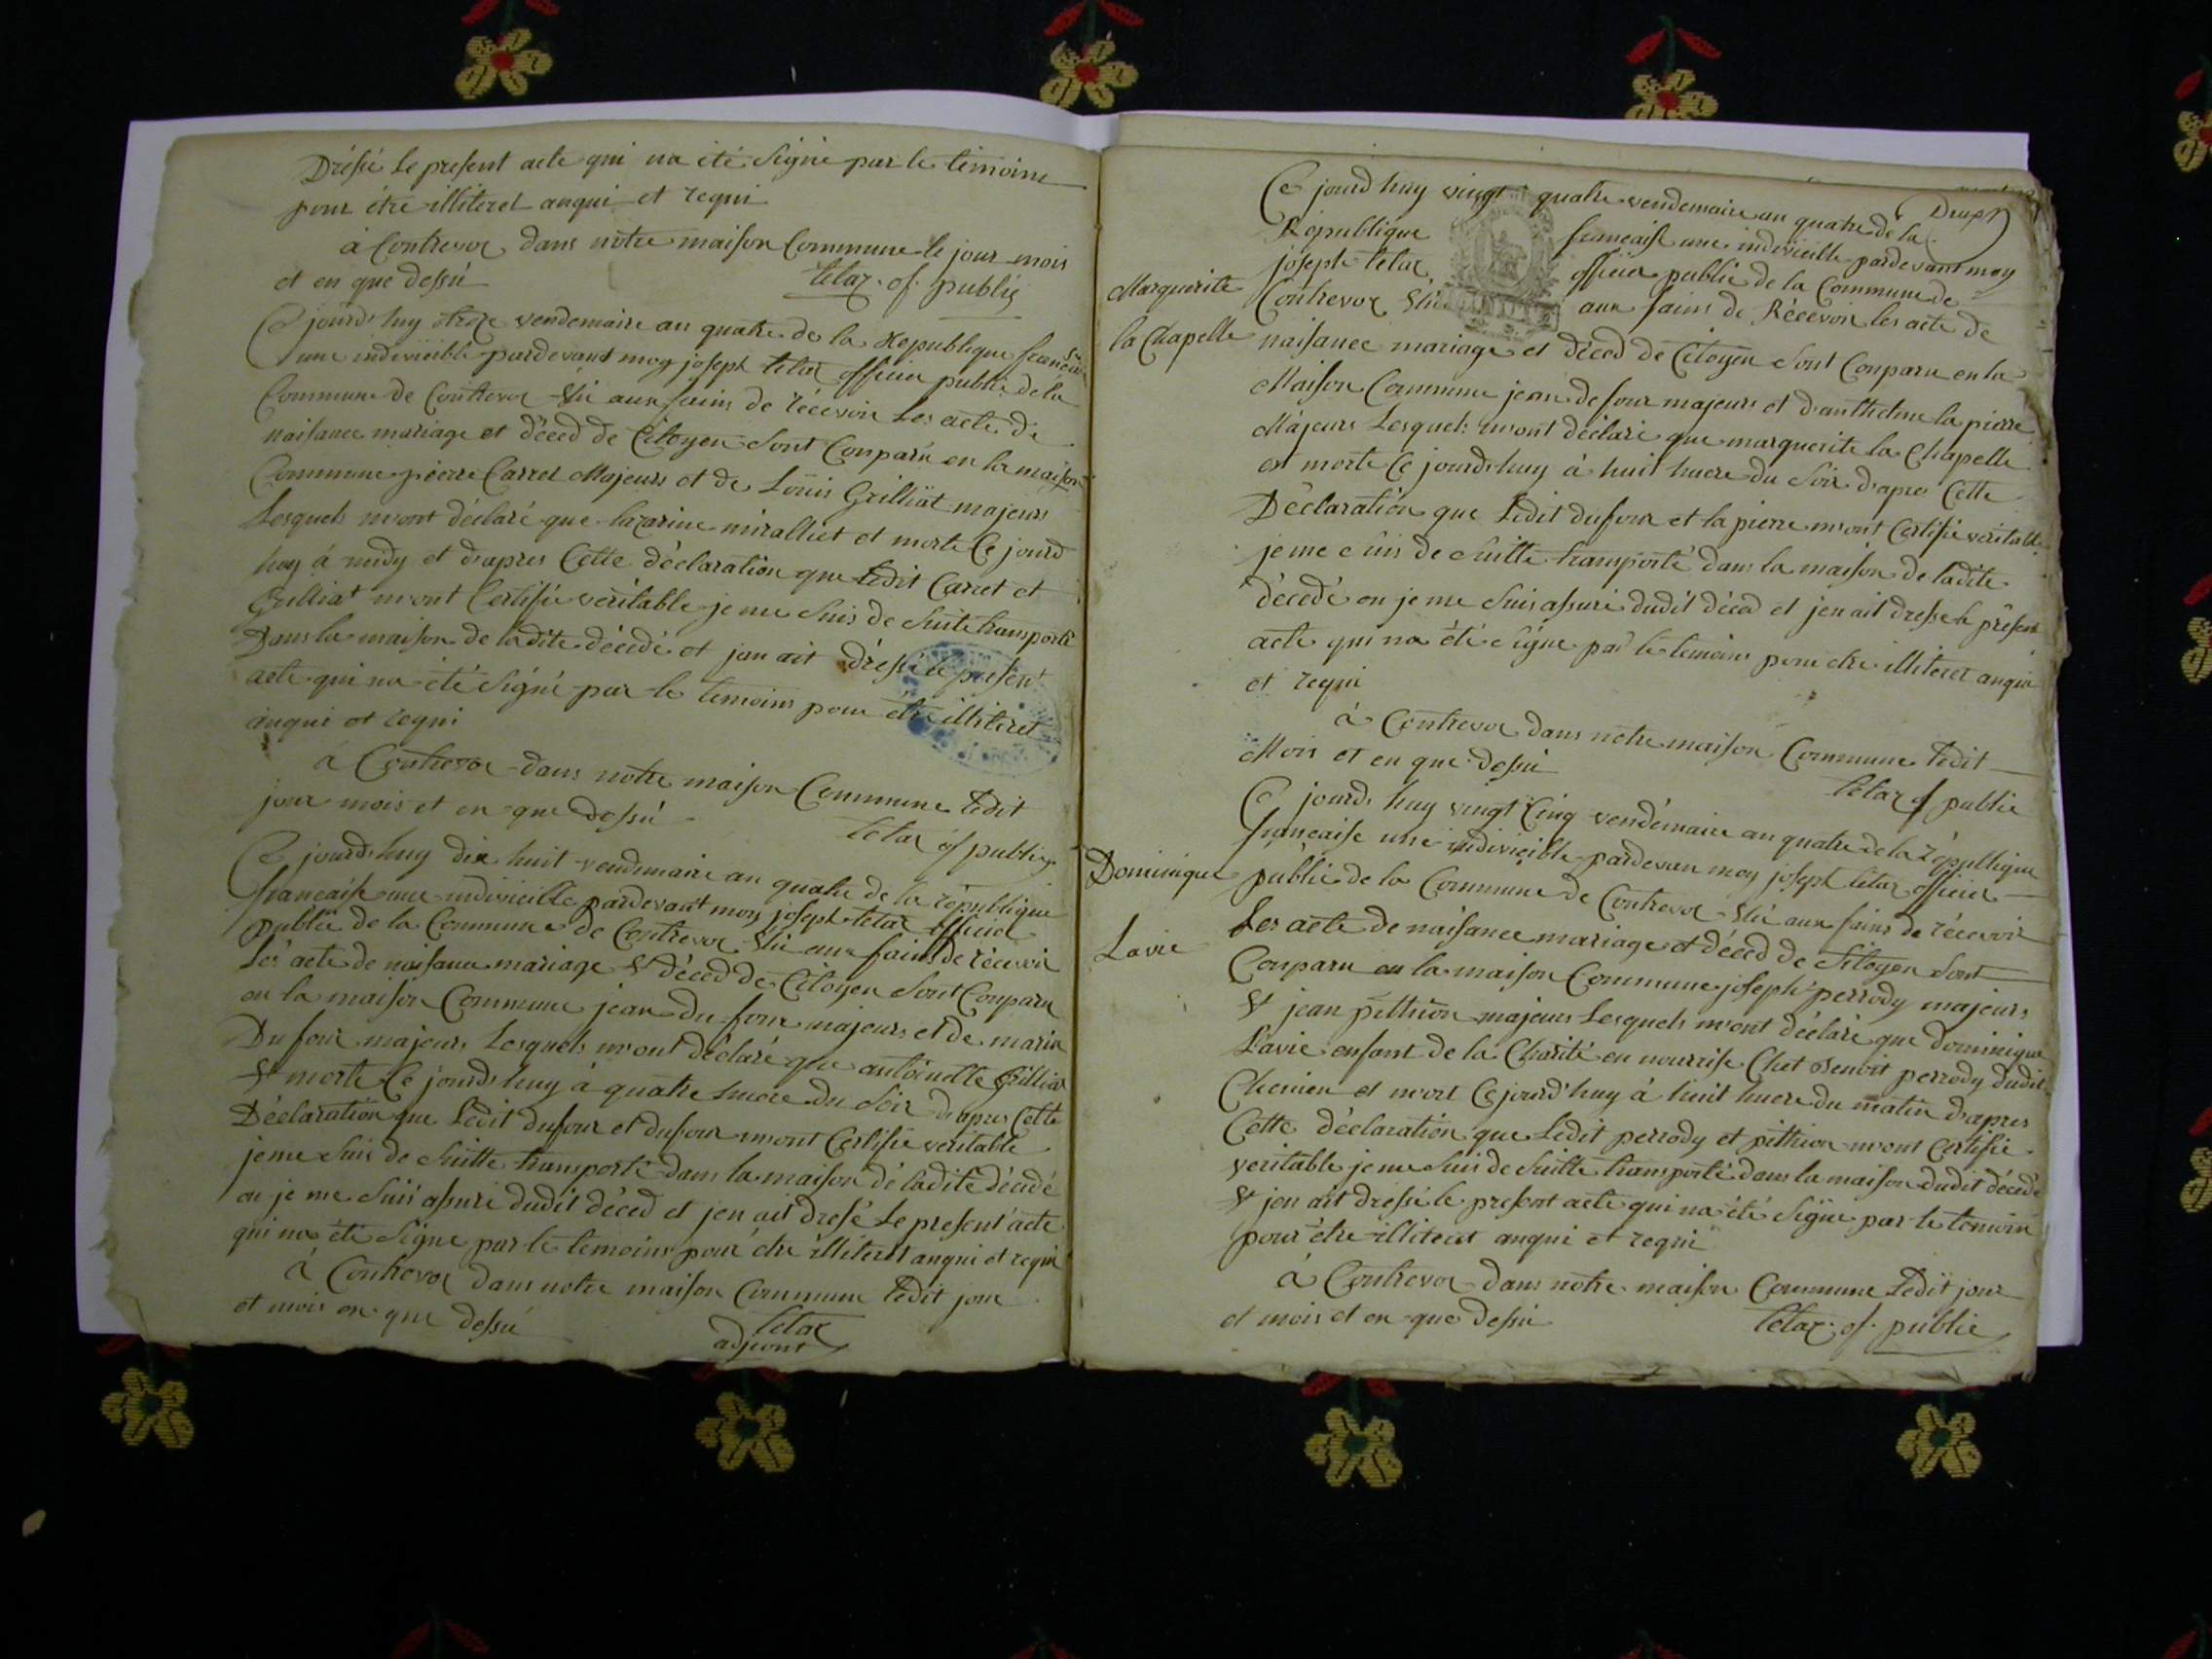 Dréssé Le present acte qui na été Signé par le témoins
pour étre illiteret anqui et requi
à Contrevoz dans notre maison Commune le jour mois
et en que dessu
tetaz. of. public
Ce jourd'huy treze vendemaire an quatre de la Republique francaise
une indivicible pardevant moy joseph tetaz officier public de la
Commune de Contrevoz Elu aux fains de récevoir Les acte de
naisance mariage et déced de Citoyen Sont Conparu en la maison
Commune pierre Carret Majeurs et de Louis Grilliat majeurs
Lesquels m'ont déclaré que lazarine miralliet et morte Ce jourd
huy à midy et d'apres Cette déclaration que Ledit Carret et
Grilliat m'ont Certifié véritable je me Suis de Suite transporté
Dans la maison de ladite décédé et jan ait dréssé le present
acte qui na été Signé par le temoins pour étre illiteret
anqui et requi
à Contrevoz dans notre maison Commune Ledit
jour mois et en que dessu
tetaz of public
Ce jourd'huy dix huit vendemaire an quatre de la république
francaise une indivicible pardevant moy joseph tetaz officier
public de la Commune de Contrevoz Elu aux fains de récevoir
Les acte de naisance mariage Et déced de Citoyen Sont Conparu
en la maison Commune jean du four majeurs et de marin
Du four majeurs Lesquels m'ont déclaré que antoinette Grilliat
Et morte Ce jourd'huy à quatre huere du Soir d'apres Cette
Déclaration que Ledit dufour et dufour m'ont Certifié veritable
je me Suis de Suitte transporté dans la maison de ladite décédé
ou je me Suis assuré dudit déced et jen ait dresé Le present acte
qui na été Signe par le temoins pour étre illiteret anqui et requi
à Contrevoz dans notre maison Commune Ledit jour
et mois en que dessu
tetaz
adjoint
Deux
Ce jourd'huy vingt quatre vendemaire an quatre de la
Republique francaise une indivicible pardevant moy
joseph tetaz officier public de la Commune de
Marguerite
Contrevoz Elu aux fains de Récevoir les acte de
la Chapelle
naisance mariage et déced de Citoyen Sont Conparu en la
Maison Commune jean de four majeurs et d'anthelme la pierre
Majeurs Lesquels m'ont déclaré que marguerite la Chapelle
et morte Ce jourd'huy à huit huere du Soir d'apres Cette
Déclaration que Ledit dufour et la pierre m'ont Certifié veritable
je me Suis de Suitte transporté dans la maison de ladite
décedé ou je me Suis assuré dudit déced et jen ait dressé le présent
acte qui na été Signe par le temoins pour étre illiteret anqui
et requi
à Contrevoz dans notre maison Commune Ledit
Mois et en que dessu
tetaz of public
Ce jourd'huy vingt Cinq vendémaire an quatre de la Républlique
francaise une indivicible pardevan moy joseph tetaz officier
Dominique
public de la Commune de Contrevoz Elu aux fains de récevoir
Les acte de naisance mariage et déced de Sitoyen Sont
Lavie
Conparu en la maison Commune joseph perrody majeurs
Et jean pithion majeurs Lesquels m'ont déclaré que dominique
Lavie enfant de la Charité en nourrise Chet Benoit perrody dudit
Chemien et mort Ce jourd'huy à huit huere du matin d'apres
Cette déclaration que Ledit perrody et pithion m'ont Certifié
veritable je me Suis de Suitte transporté dans la maison dudit décédé
Et jen ait dressé le present acte qui na été Signe par le temoin
pour étre illiteret anqui et requi
à Contrevoz dans notre maison Commune Ledit jour
et mois et en que dessu
tetaz. of. public